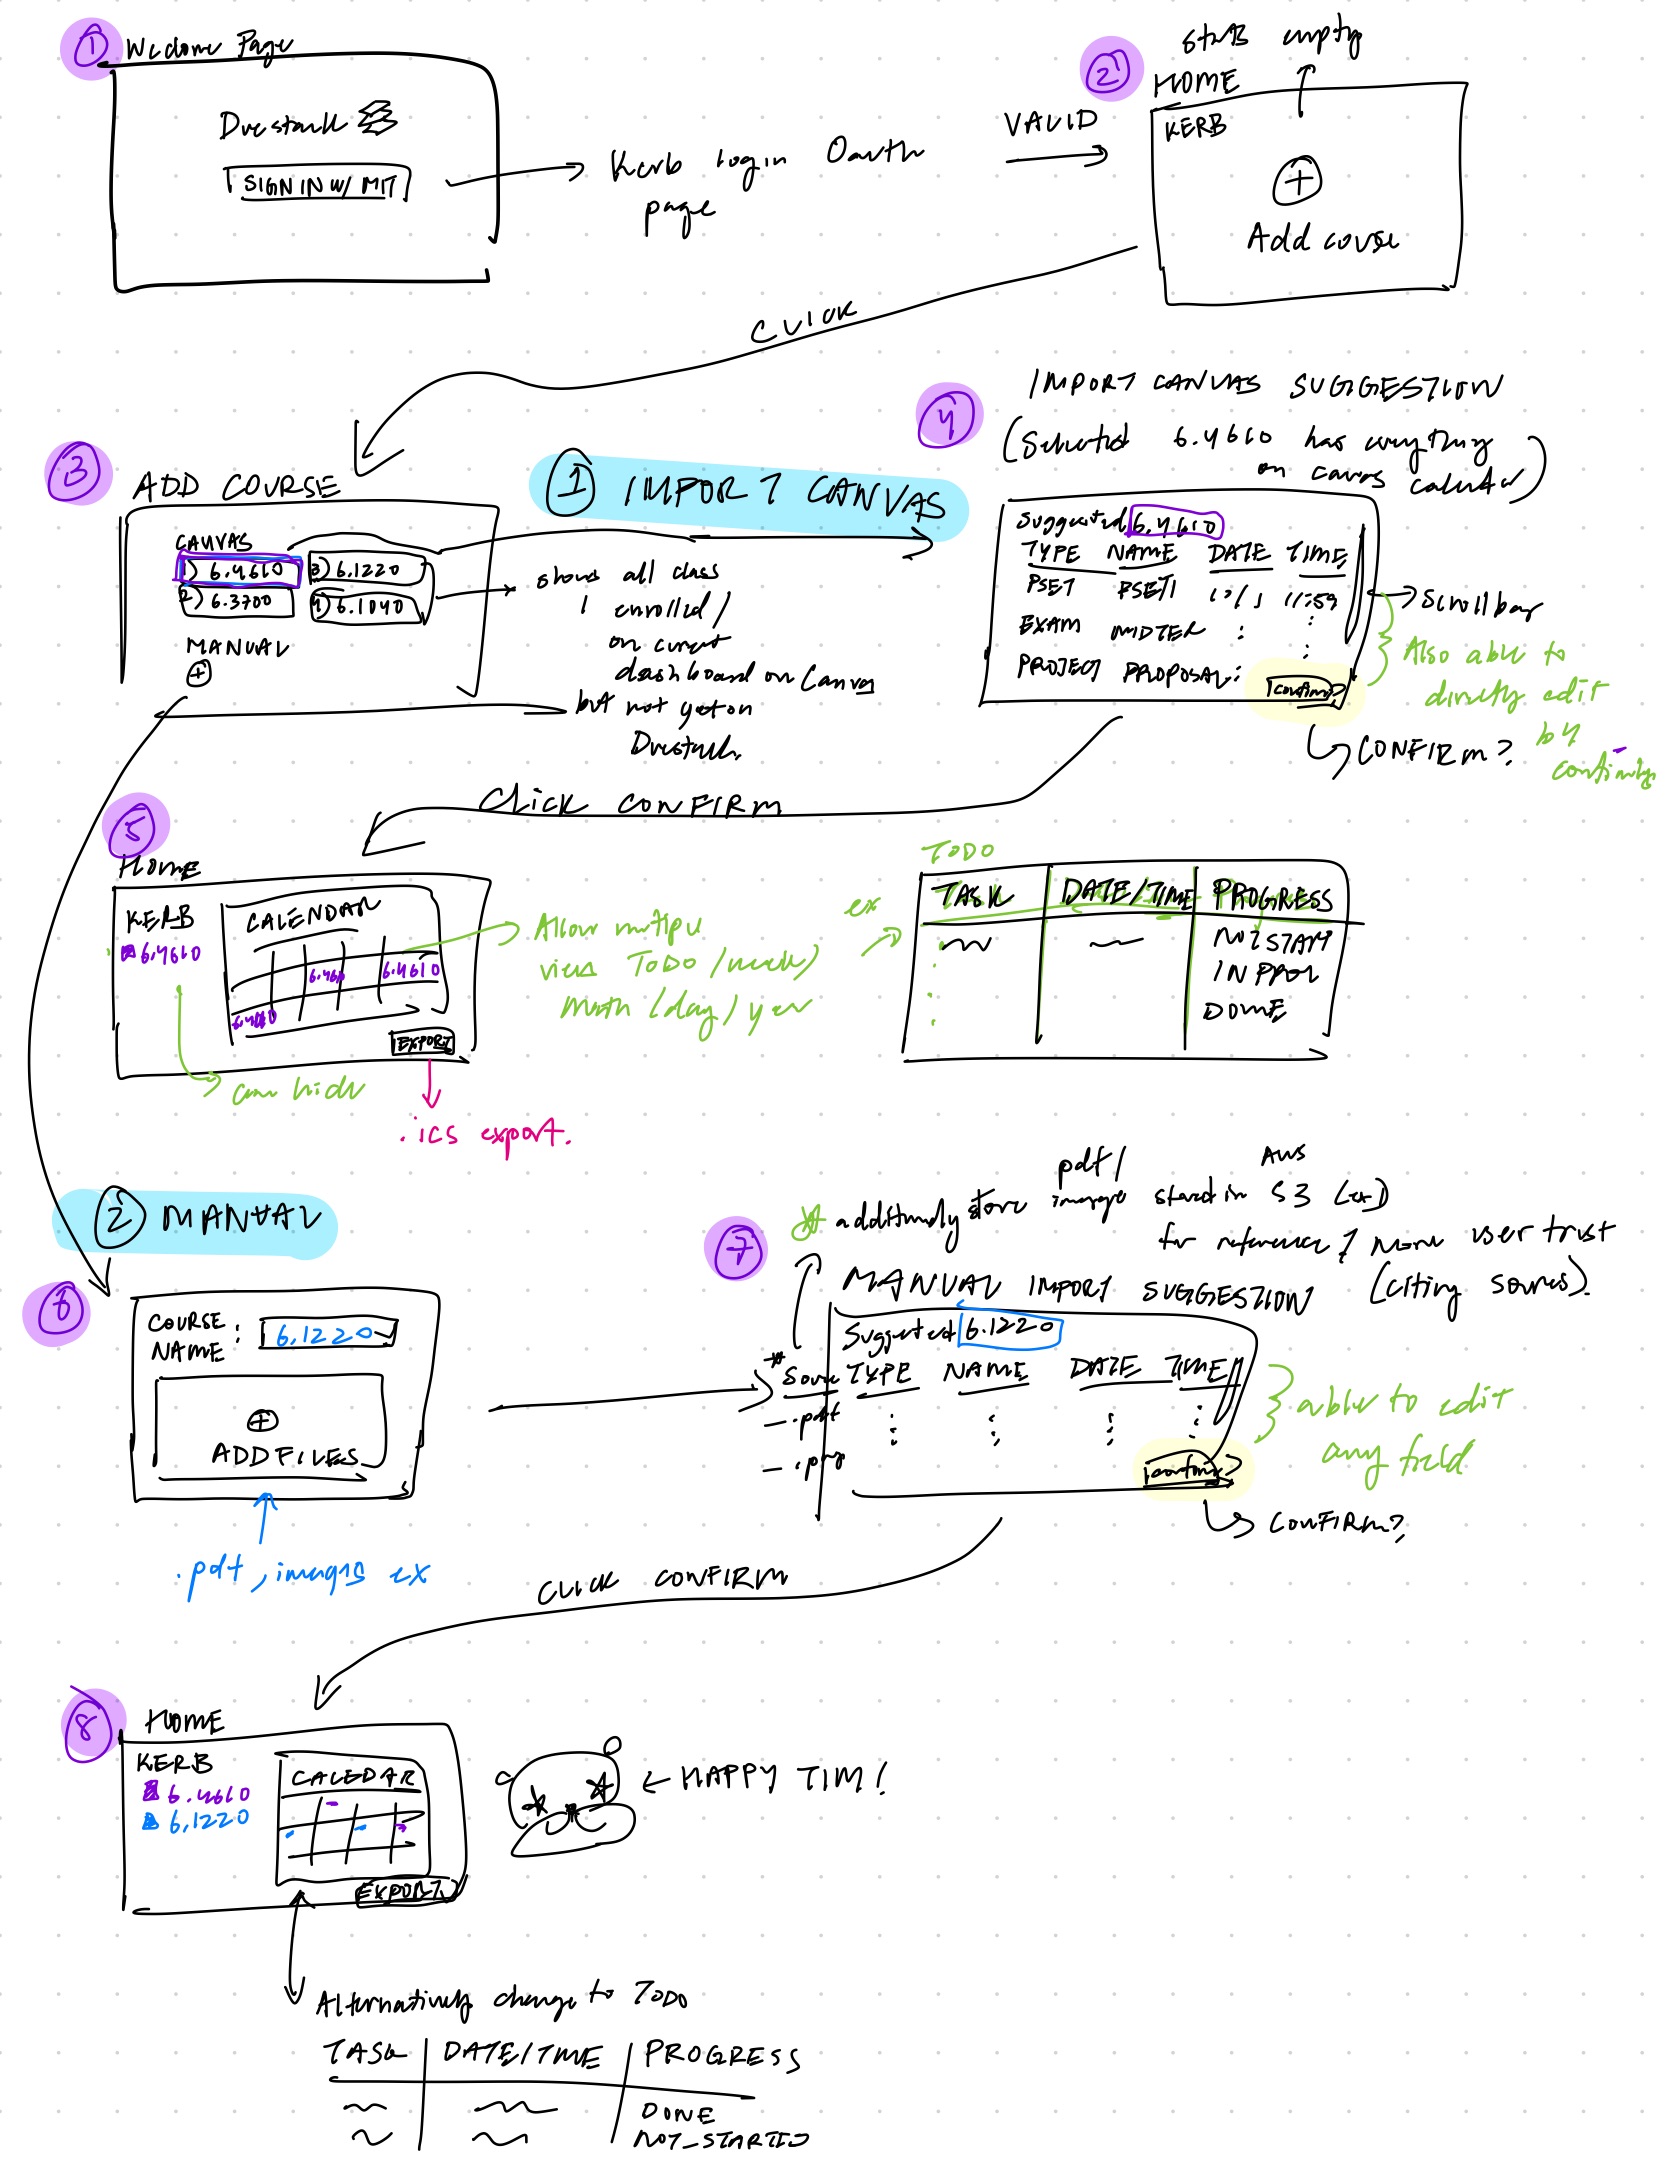 1
Welcome Page
Duestack
SIGN IN W/ MIT
Kerb login Oauth
page
VALID
2
starts empty
HOME
KERB
+
Add course
CLICK
3
ADD COURSE
CANVAS
1) 6.4610
3) 6.1220
2) 6.3700
4) 6.1040
MANUAL
+
shows all class
I enrolled /
on current
dashboard on Canvas
but not yet on
Duestack
1 IMPORT CANVAS
4
IMPORT CANVAS SUGGESTION
(Selected 6.4610 has everything
on canvas calendar)
Suggested 6.4610
TYPE NAME DATE TIME
PSET PSET1 11:59
EXAM MIDTER :
PROJECT PROPOSAL :
confirm
Scrollbar
Also able to
directly edit
by
CONFIRM?
CLICK CONFIRM
5
HOME
KERB
6.4610
CALENDAR
6.4610
6.4610
6.4610
EXPORT
can hide
.ics export.
Allow multiple
views TODO /week/
Month /day/ year
ex
TODO
TASK DATE/TIME PROGRESS
NOT START
IN PROG
DONE
2 MANUAL
6
COURSE
NAME : 6.1220
+
ADD FILES
.pdf, images ex
7
* additionally store pdf/ image stored in AWS S3
for reference / more user trust
(citing sources).
MANUAL IMPORT SUGGESTION
Suggested 6.1220
* Source TYPE NAME DATE TIME
- .pdf
- .png
confirm
able to edit
any field
CONFIRM?
CLICK CONFIRM
8
HOME
KERB
6.4610
6.1220
CALEDAR
EXPORT
← HAPPY TIM!
Alternatively change to TODO
TASK DATE/TIME PROGRESS
DONE
NOT_STARTED